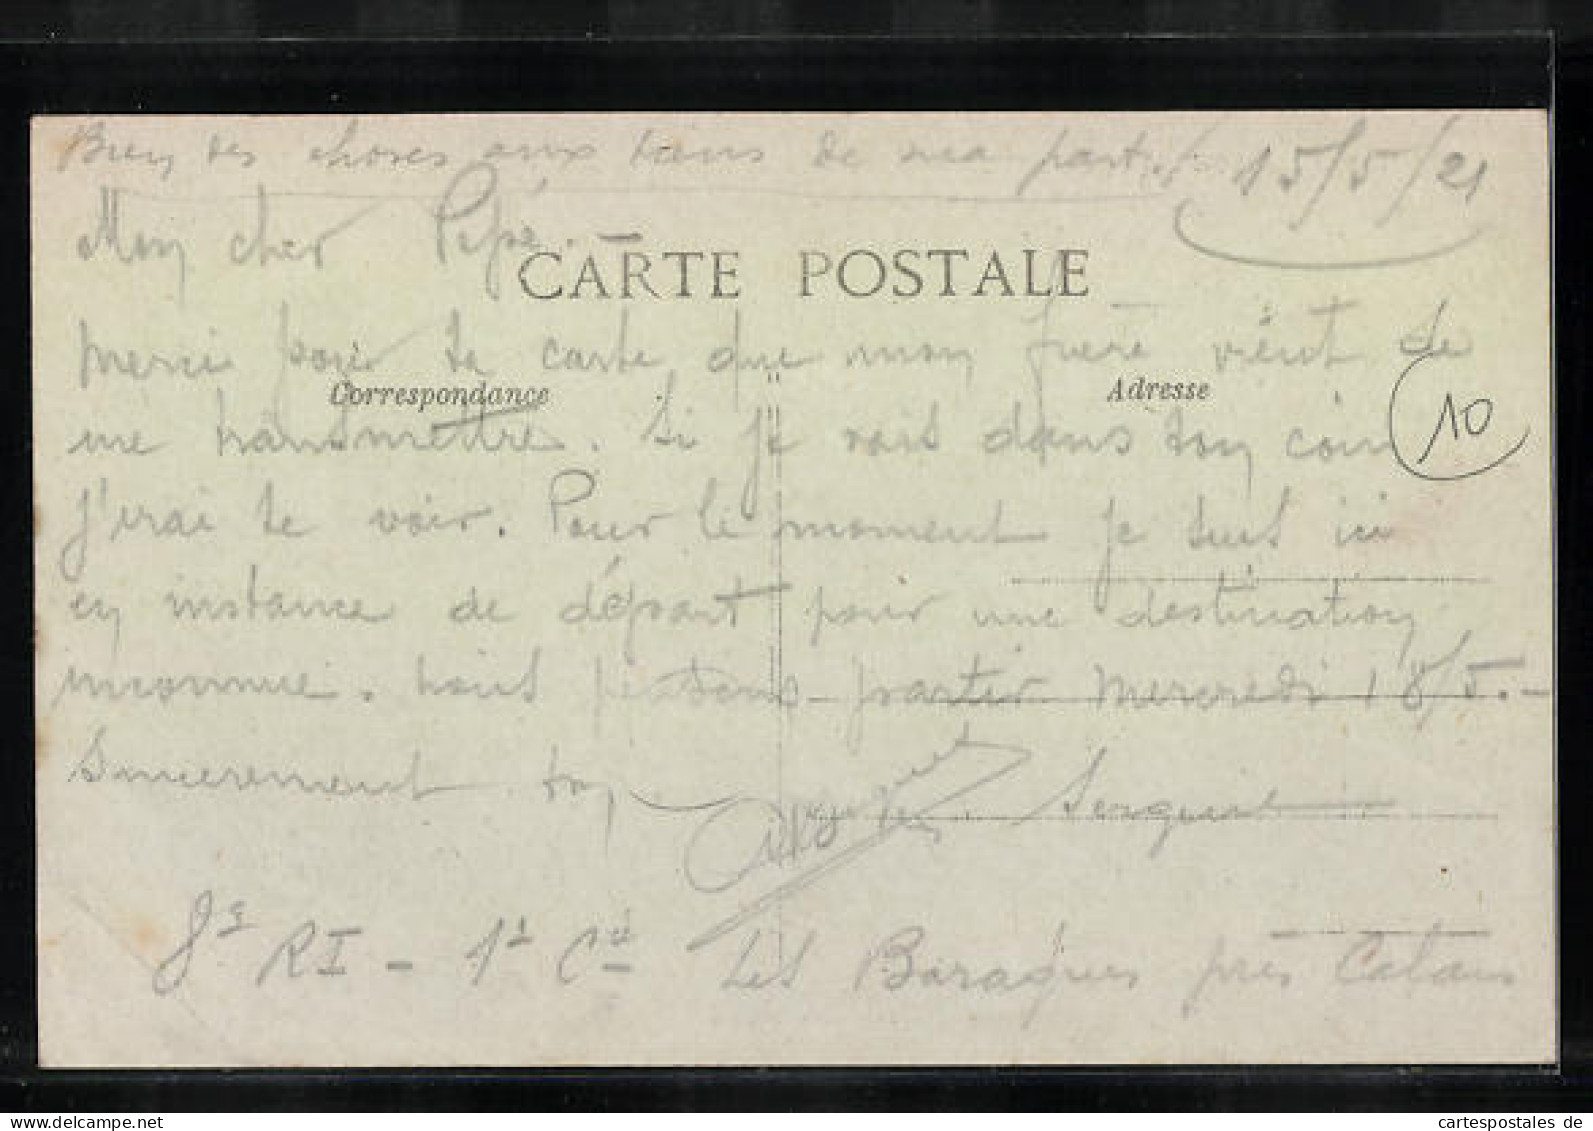 Bien des choses aux tiens de ma part. 15/5/21
Mon cher Pépé. —
CARTE POSTALE
merci pour ta carte que mon frère vient de
Correspondance
Adresse
me transmettre. Si je vais dans ton coin
10
j'irai te voir. Pour le moment je suis ici
en instance de départ pour une destination
inconnue. nous pensons partir mercredi 18/5. —
Sincèrement ton Sergent
8e RI - 1e Cie Les Baraques près Calais
cartespostales de
www.delcampe.net